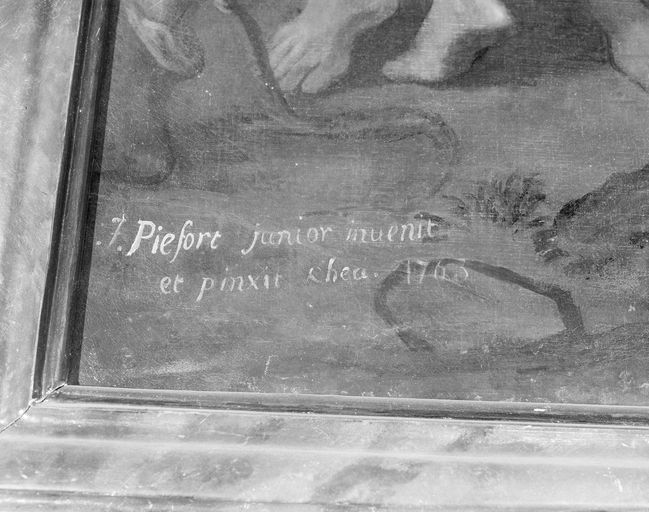 J. Piefort junior invenit
et pinxit rhea. 1763